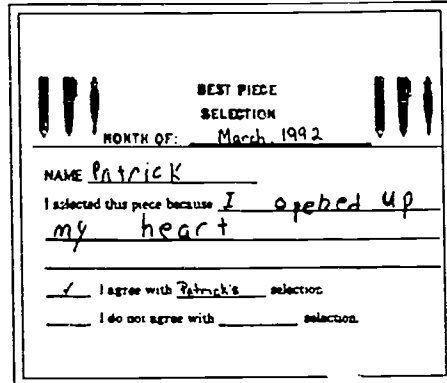 BEST PIECE
SELECTION
MONTH OF: March, 1992
NAME Patrick
I selected this piece because I opebed up
my heart
✓ I agree with Patrick's selection.
I do not agree with selection.